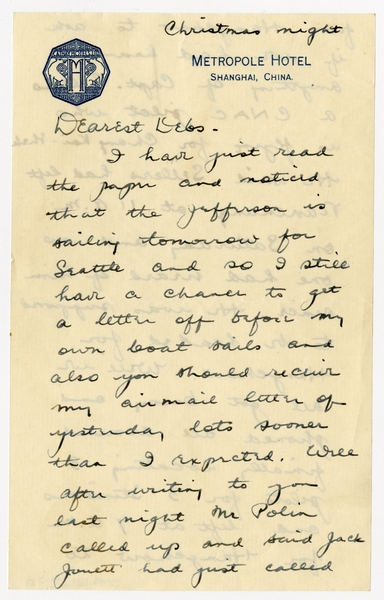 Christmas night
METROPOLE HOTEL
SHANGHAI, CHINA.
Dearest Debs -
I have just read
the paper and noticed
that the Jefferson is
sailing tomorrow for
Seattle and so I still
have a chance to get
a letter off before my
own boat sails and
also you should receive
my airmail letter of
yesterday lots sooner
than I expected. Well
after writing to you
last night Mr Polin
called up and said Jack
had just called